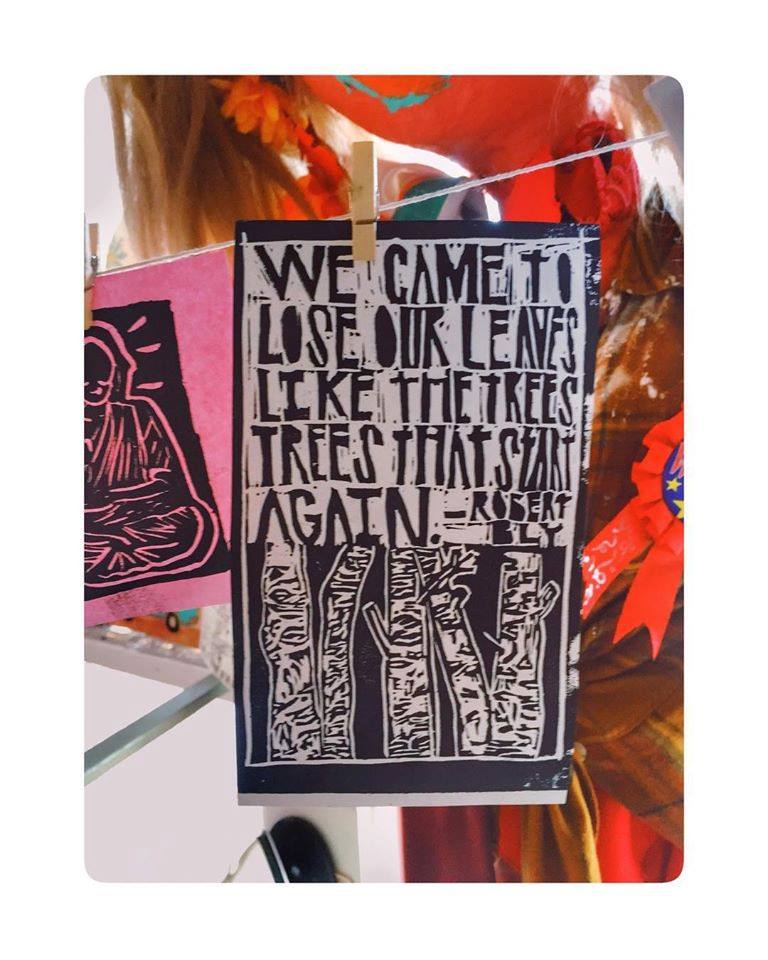 WE CAME TO
LOSE OUR LEAVES
LIKE THE TREES
TREES THAT START
AGAIN. -ROBERT
BLY